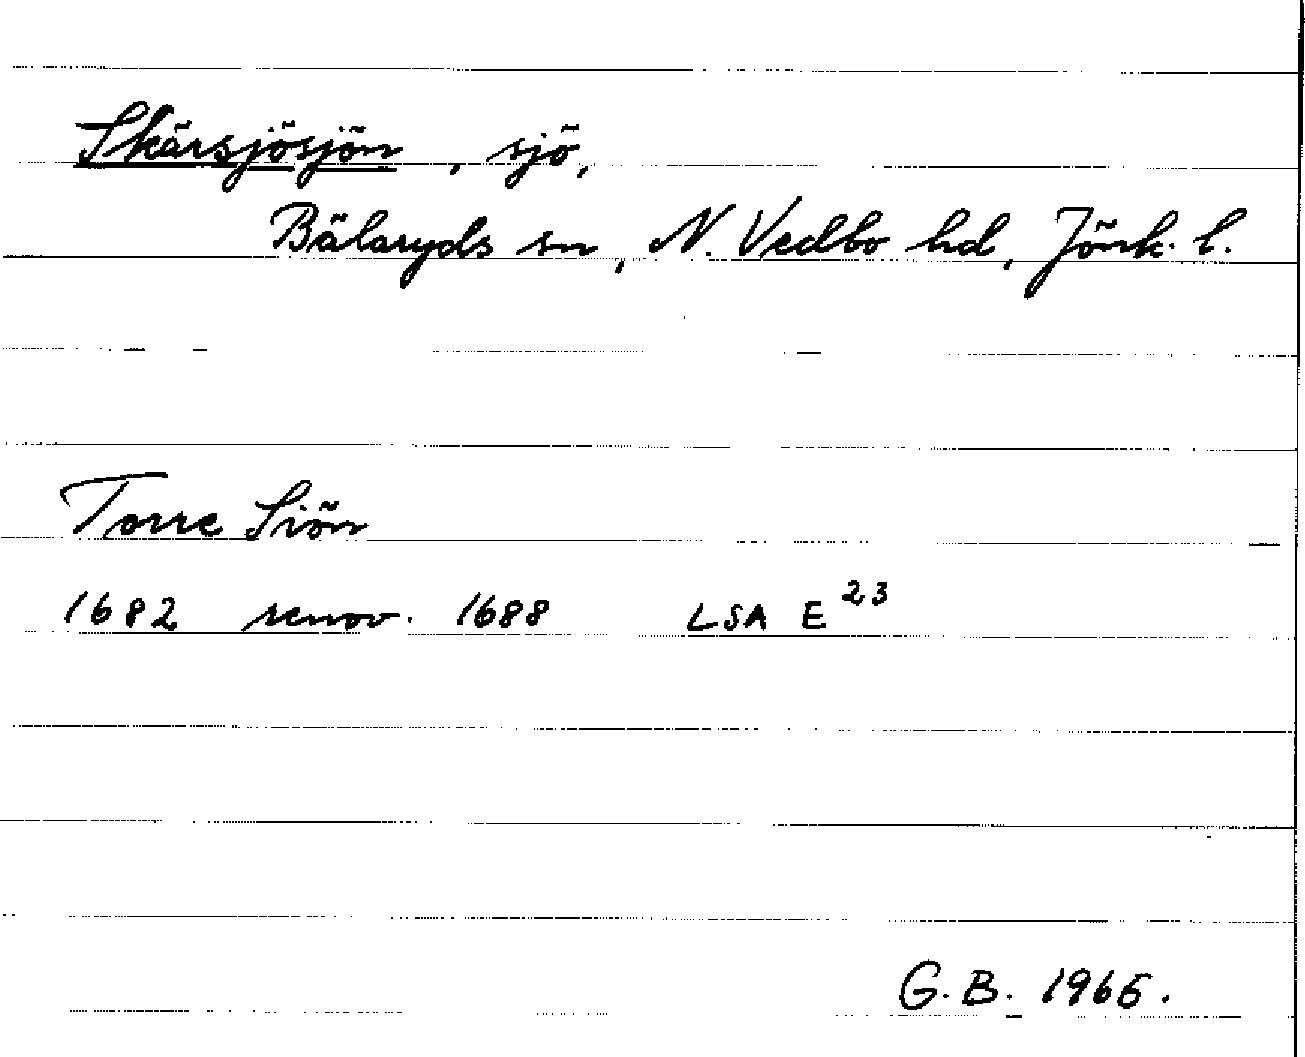 Skärsjösjön, sjö,
Bälaryds sn, N. Vedbo hd, Jönk. l.
Torre Siön
1682 renov. 1688 LSA E 23
G. B. 1965.